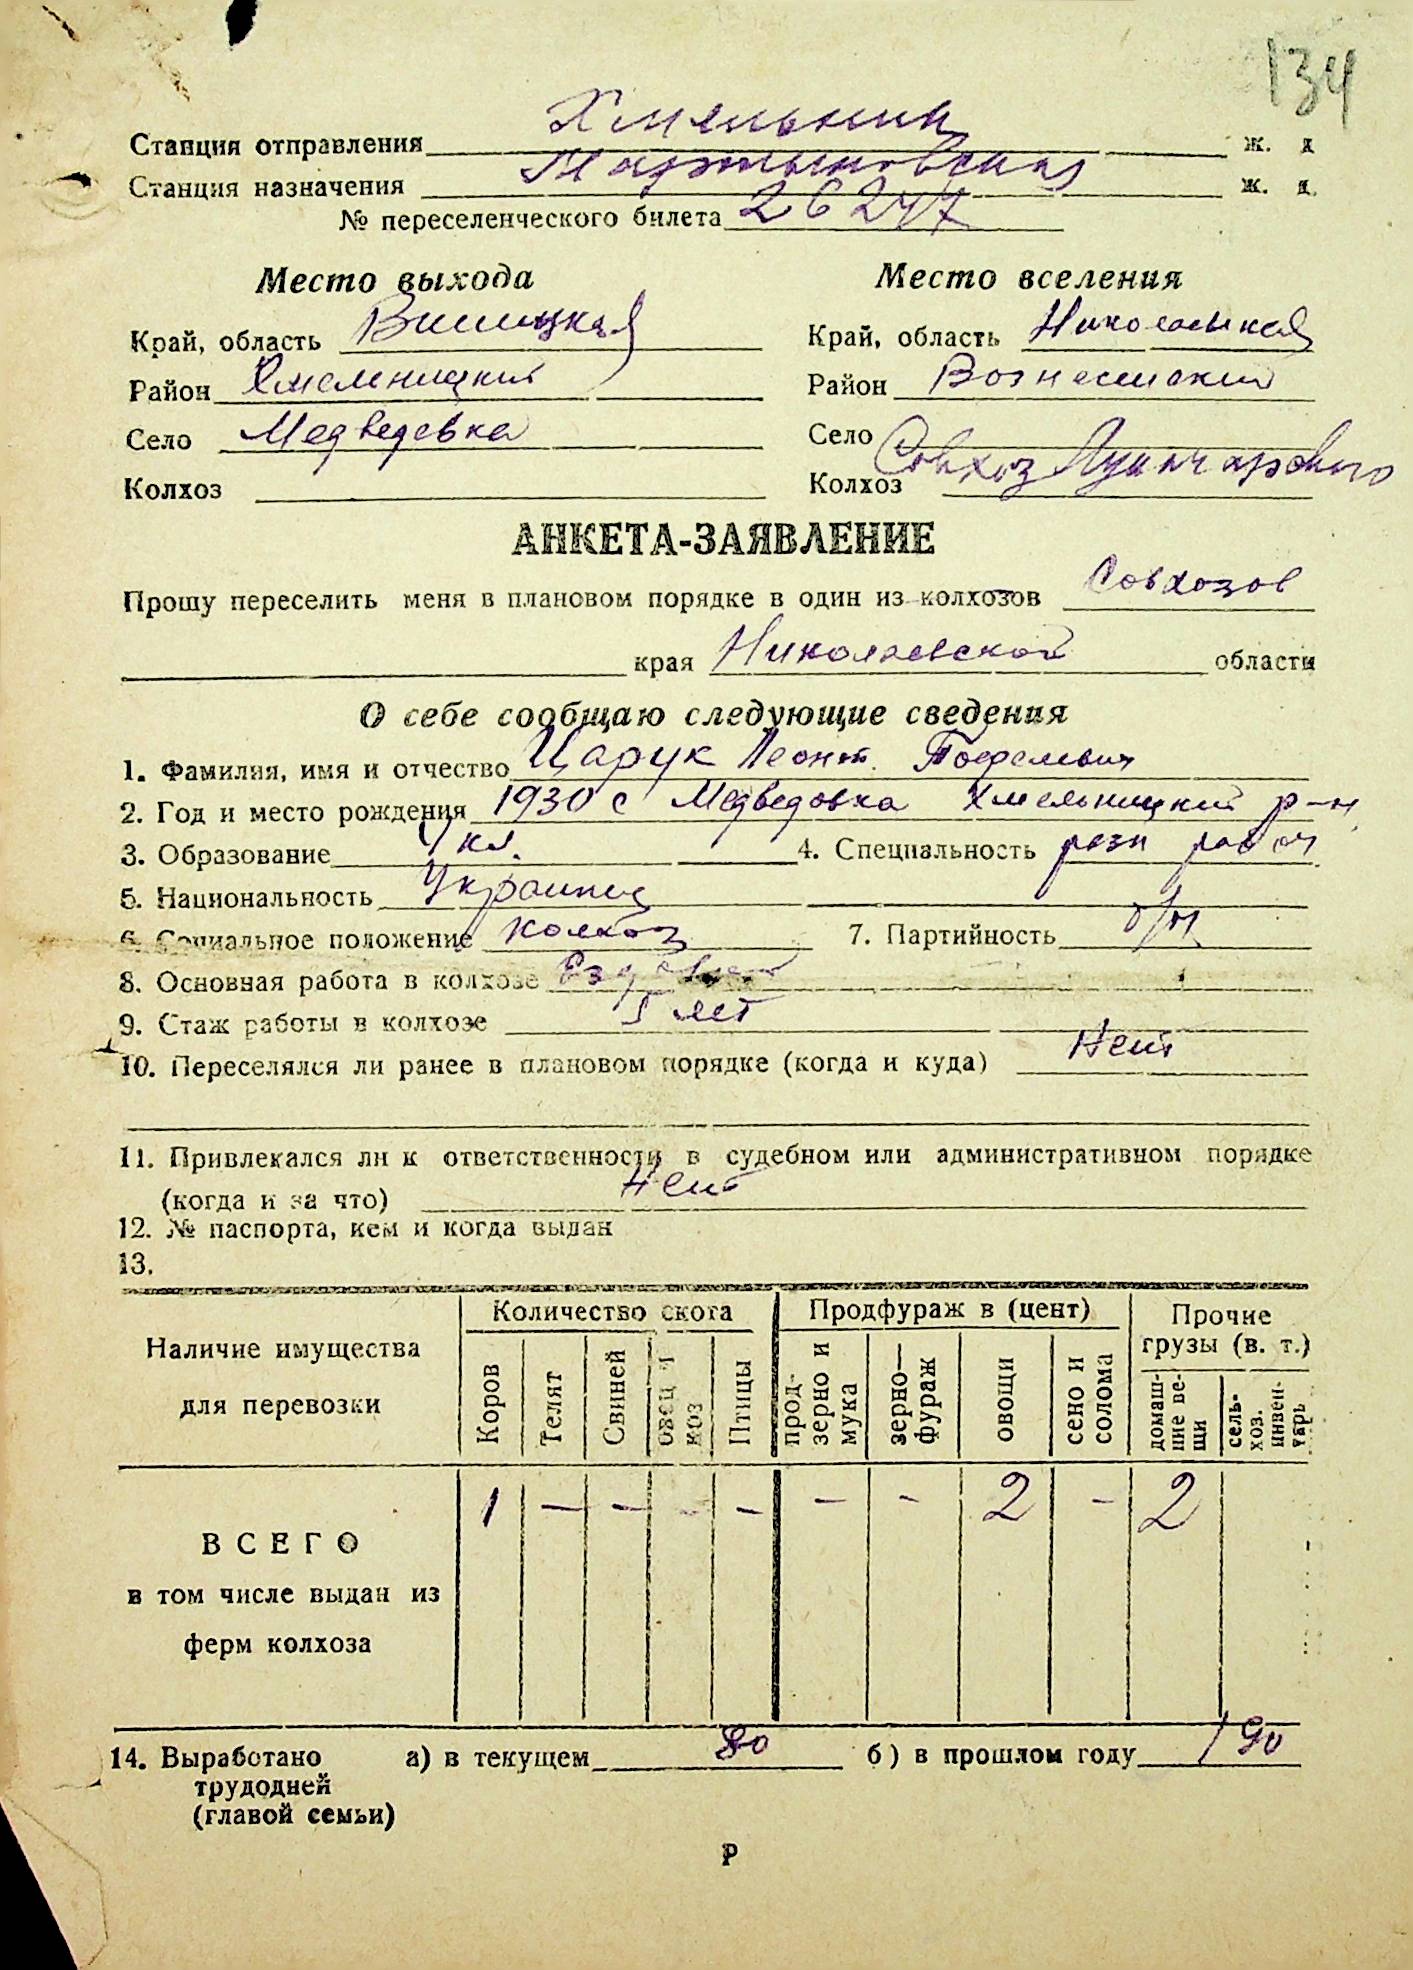 134
Станция отправления Хмельник ж. д
Станция назначения Мартыновская ж. д.
№ переселенческого билета 26247
Место выхода Место вселения
Край, область Винницкая Край, область Николаевская
Район Хмельницкий Район Вознесенский
Село Медведевка Село
Колхоз Колхоз Совхоз Луначарского
АНКЕТА-ЗАЯВЛЕНИЕ
Прошу переселить меня в плановом порядке в один из колхозов Совхозов
края Николаевской области
О себе сообщаю следующие сведения
1. Фамилия, имя и отчество Царук Леонт.
2. Год и место рождения 1930 с Медведовка Хмельницкий р-н
3. Образование 4 кл. 4. Специальность разн рабоч
5. Национальность Украинец
6. Социальное положение колхоз 7. Партийность б/п
8. Основная работа в колхозе Ездовый
9. Стаж работы в колхозе 5 лет
10. Переселялся ли ранее в плановом порядке (когда и куда) Нет
11. Привлекался ли к ответственности в судебном или административном порядке
(когда и за что) Нет
12. № паспорта, кем и когда выдан
13.
Наличие имущества для перевозки
Количество скота Продфураж в (цент) Прочие грузы (в. т.)
Коров Телят Свиней овец и коз Птицы прод-зерно и мука зерно—фураж овощи сено и солома домаш-ние ве-щи сель-хоз. инвен-тарь
ВСЕГО 1 — — - — — - 2 - 2
в том числе выдан из
ферм колхоза
14. Выработано а) в текущем 80 б) в прошлом году 190
трудодней
(главой семьи)
Р